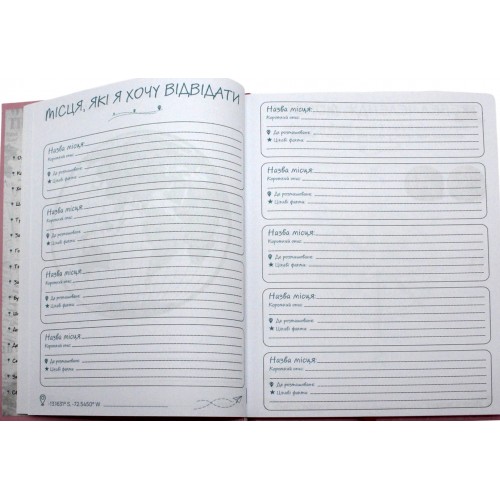 МІСЦЯ, ЯКІ Я ХОЧУ ВІДВІДАТИ
Назва місця:
Короткий опис:
Де розташоване:
Цікаві факти:
Назва місця:
Короткий опис:
Де розташоване:
Цікаві факти:
Назва місця:
Короткий опис:
Де розташоване:
Цікаві факти:
Назва місця:
Короткий опис:
Де розташоване:
Цікаві факти:
Назва місця:
Короткий опис:
Де розташоване:
Цікаві факти:
Назва місця:
Короткий опис:
Де розташоване:
Цікаві факти:
Назва місця:
Короткий опис:
Де розташоване:
Цікаві факти:
Назва місця:
Короткий опис:
Де розташоване:
Цікаві факти:
Назва місця:
Короткий опис:
Де розташоване:
Цікаві факти: